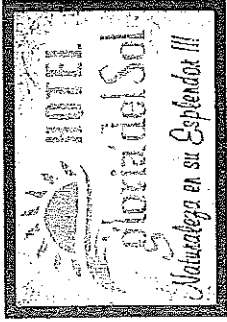 HOTEL
Gloria del Sol
Naturaleza en su Esplendor !!!